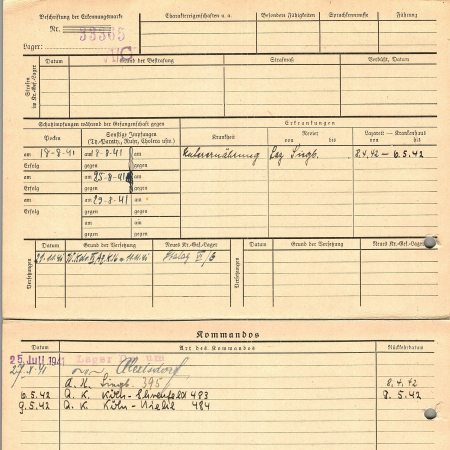 Beschriftung der Erkennungsmarke
Nr. 33365
Lager: VI G
Charaktereigenschaften u. a.
Besondere Fähigkeiten
Sprachkenntnisse
Führung
Strafen im Kr.-Gef.-Lager
Datum
Grund der Bestrafung
Strafmaß
Verbüßt, Datum
Schutzimpfungen während der Gefangenschaft gegen
Erkrankungen
Pocken
Sonstige Impfungen
(Ty.-Paraty., Ruhr, Cholera usw.)
Krankheit
Revier
von bis
Lazarett — Krankenhaus
von bis
am 18-8-41 am 8-8-41 am
Erfolg gegen gegen
am am 25-8-41 am
Erfolg gegen gegen
am am 29-8-41 am
Erfolg gegen gegen
am am
gegen gegen
Unterernährung
Laz. Singb.
8.4.42 — 6.5.42
Versetzungen
Datum
Grund der Versetzung
Neues Kr.-Gef.-Lager
Datum
Grund der Versetzung
Neues Kr.-Gef.-Lager
Stalag VI/G
Kommandos
Datum
Art des Kommandos
Rückkehrdatum
25. Juli 1941
Lager
A. K. Singb. 395 8.4.42
6.5.42 A. K. Köln-Ehrenfeld 483 8.5.42
9.5.42 A. K. Köln-Niehl 484